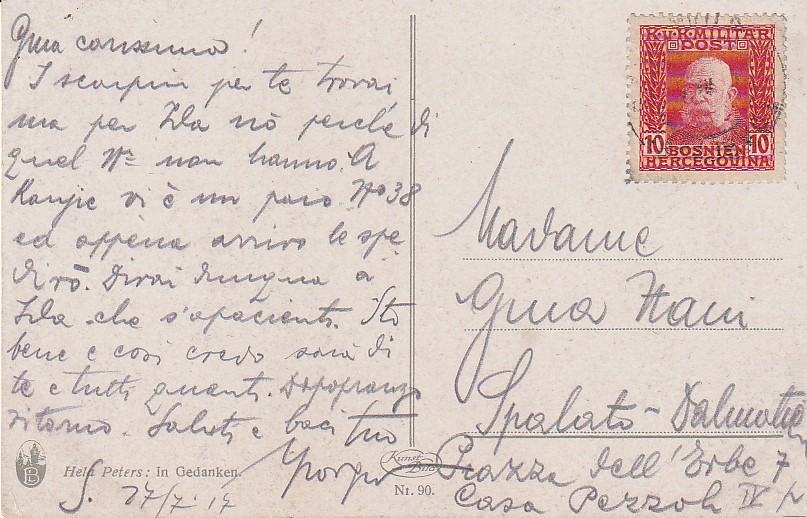 Gina carissima!
I scarpini per te trovai,
ma per Ida nò perché di
quel Nº non hanno. A
Konjic vi è un paio Nº 38
ed appena arrivo le spe
dirò. Dirai dunque a
Ida che s'apacienti. Sto
bene e così credo sarà di
te e tutti quanti. Dopopranzo
ritorno. Saluti e baci tuo
S. 27/7 17
Hela Peters: In Gedanken.
Kunst Bild
Nr. 90.
K.u.K. MILITÄR
POST
10 10
BOSNIEN
HERCEGOVINA
Madame
Gina
Spalato - Dalmatia
Piazza dell'Erbe 7
Casa Pezzoli IV